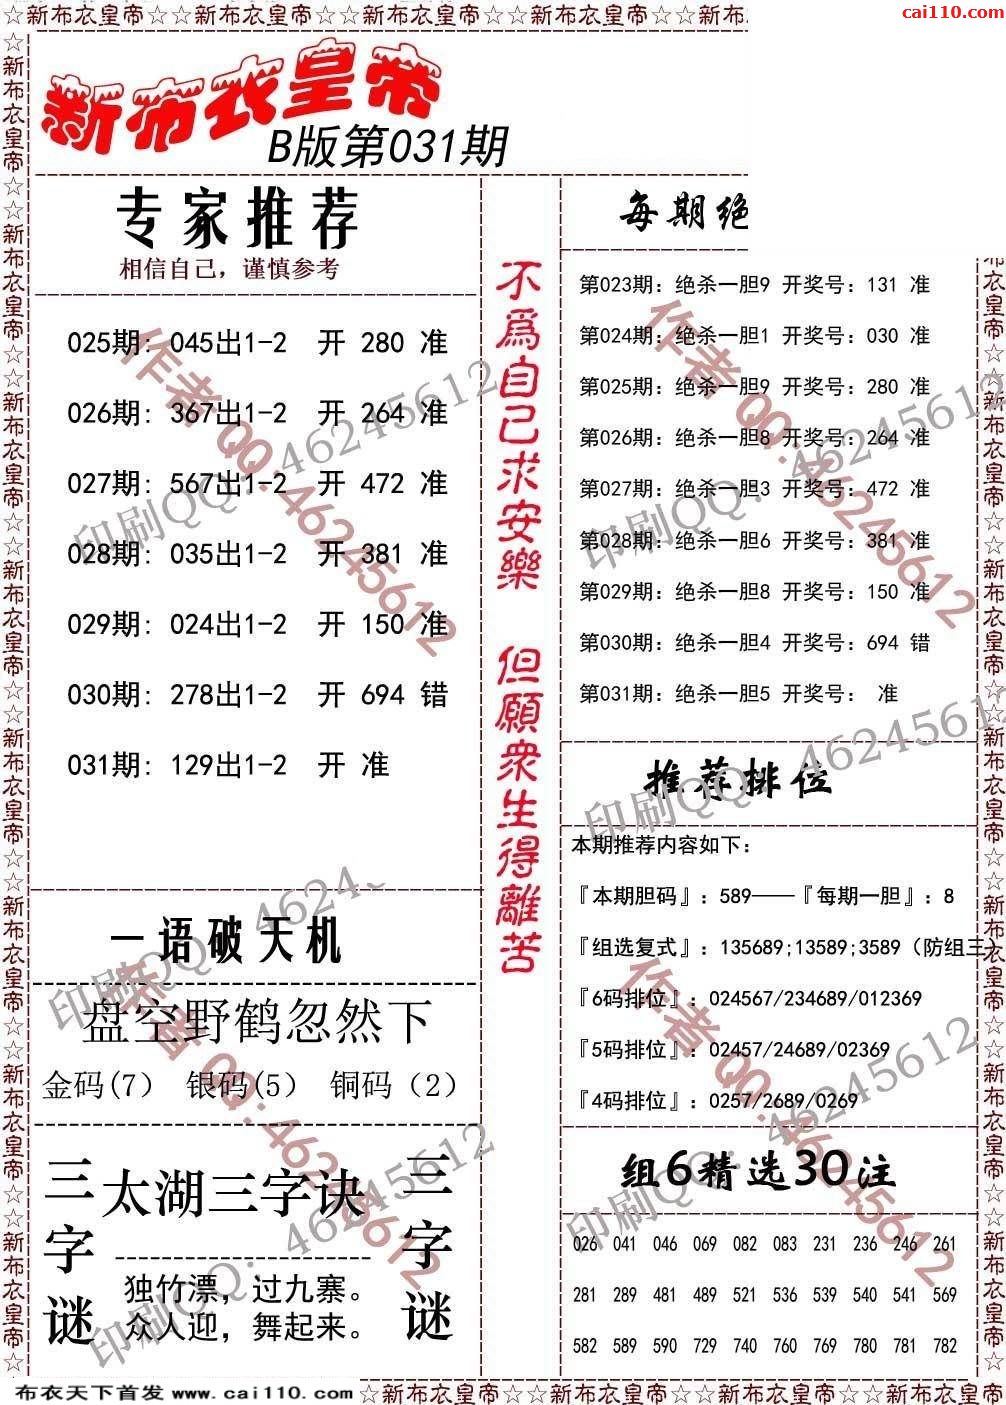 ☆新布衣皇帝☆☆新布衣皇帝☆☆新布衣皇帝☆☆新布衣皇帝☆☆新布
cai110.com
新布衣皇帝
B版第031期
专家推荐
相信自己，谨慎参考
025期: 045出1-2 开 280 准
026期: 367出1-2 开 264 准
027期: 567出1-2 开 472 准
028期: 035出1-2 开 381 准
029期: 024出1-2 开 150 准
030期: 278出1-2 开 694 错
031期: 129出1-2 开 准
一语破天机
盘空野鹤忽然下
金码(7) 银码(5) 铜码（2）
三字谜
太湖三字诀
独竹漂，过九寨。
众人迎，舞起来。
三字谜
不為自己求安樂
但願衆生得離苦
每期绝
第023期: 绝杀一胆9 开奖号: 131 准
第024期: 绝杀一胆1 开奖号: 030 准
第025期: 绝杀一胆9 开奖号: 280 准
第026期: 绝杀一胆8 开奖号: 264 准
第027期: 绝杀一胆3 开奖号: 472 准
第028期: 绝杀一胆6 开奖号: 381 准
第029期: 绝杀一胆8 开奖号: 150 准
第030期: 绝杀一胆4 开奖号: 694 错
第031期: 绝杀一胆5 开奖号: 准
推荐排位
本期推荐内容如下:
『本期胆码』: 589——『每期一胆』: 8
『组选复式』: 135689;13589;3589（防组三）
『6码排位』: 024567/234689/012369
『5码排位』: 02457/24689/02369
『4码排位』: 0257/2689/0269
组6精选30注
026 041 046 069 082 083 231 236 246 261
281 289 481 489 521 536 539 540 541 569
582 589 590 729 740 760 769 780 781 782
作者QQ:46245612
印刷QQ: 46245612
布衣天下首发 www.cai110.com
☆新布衣皇帝☆☆新布衣皇帝☆☆新布衣皇帝☆☆新布衣皇帝☆